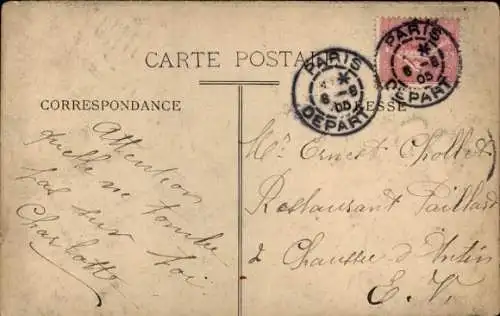 CARTE POSTALE
PARIS
6 - 8
05
DEPART
PARIS
6 - 8
05
DEPART
CORRESPONDANCE
ADRESSE
Attention
qu'elle ne tombe
pas sur toi
Charlotte
Mr Ernest Chollet
Restaurant Paillard
2 Chaussée d'Antin
E. V.